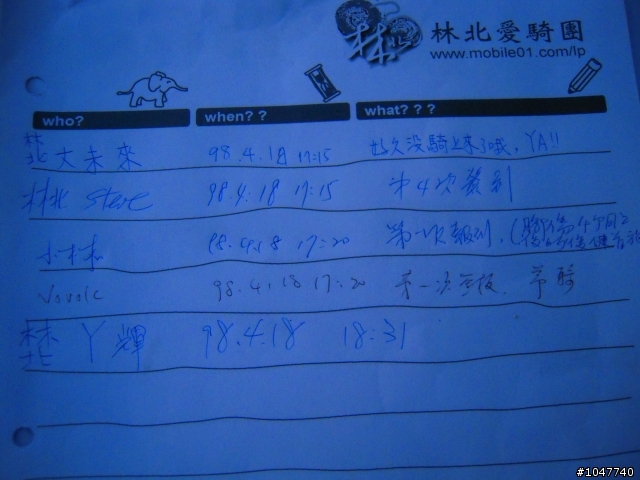 林北愛騎團
www.mobile01.com/lp
who? when? ? what? ? ?
林北大未來 98.4.18 17:15 好久沒騎上來了哦, YA!!
林北 Steve 98.4.18 17:15 第4次簽到
小林 98.4.18 17:20 第一次報到.
Vovolc 98.4.18 17:20 第一次
林北 丫輝 98.4.18 18:31
#1047740